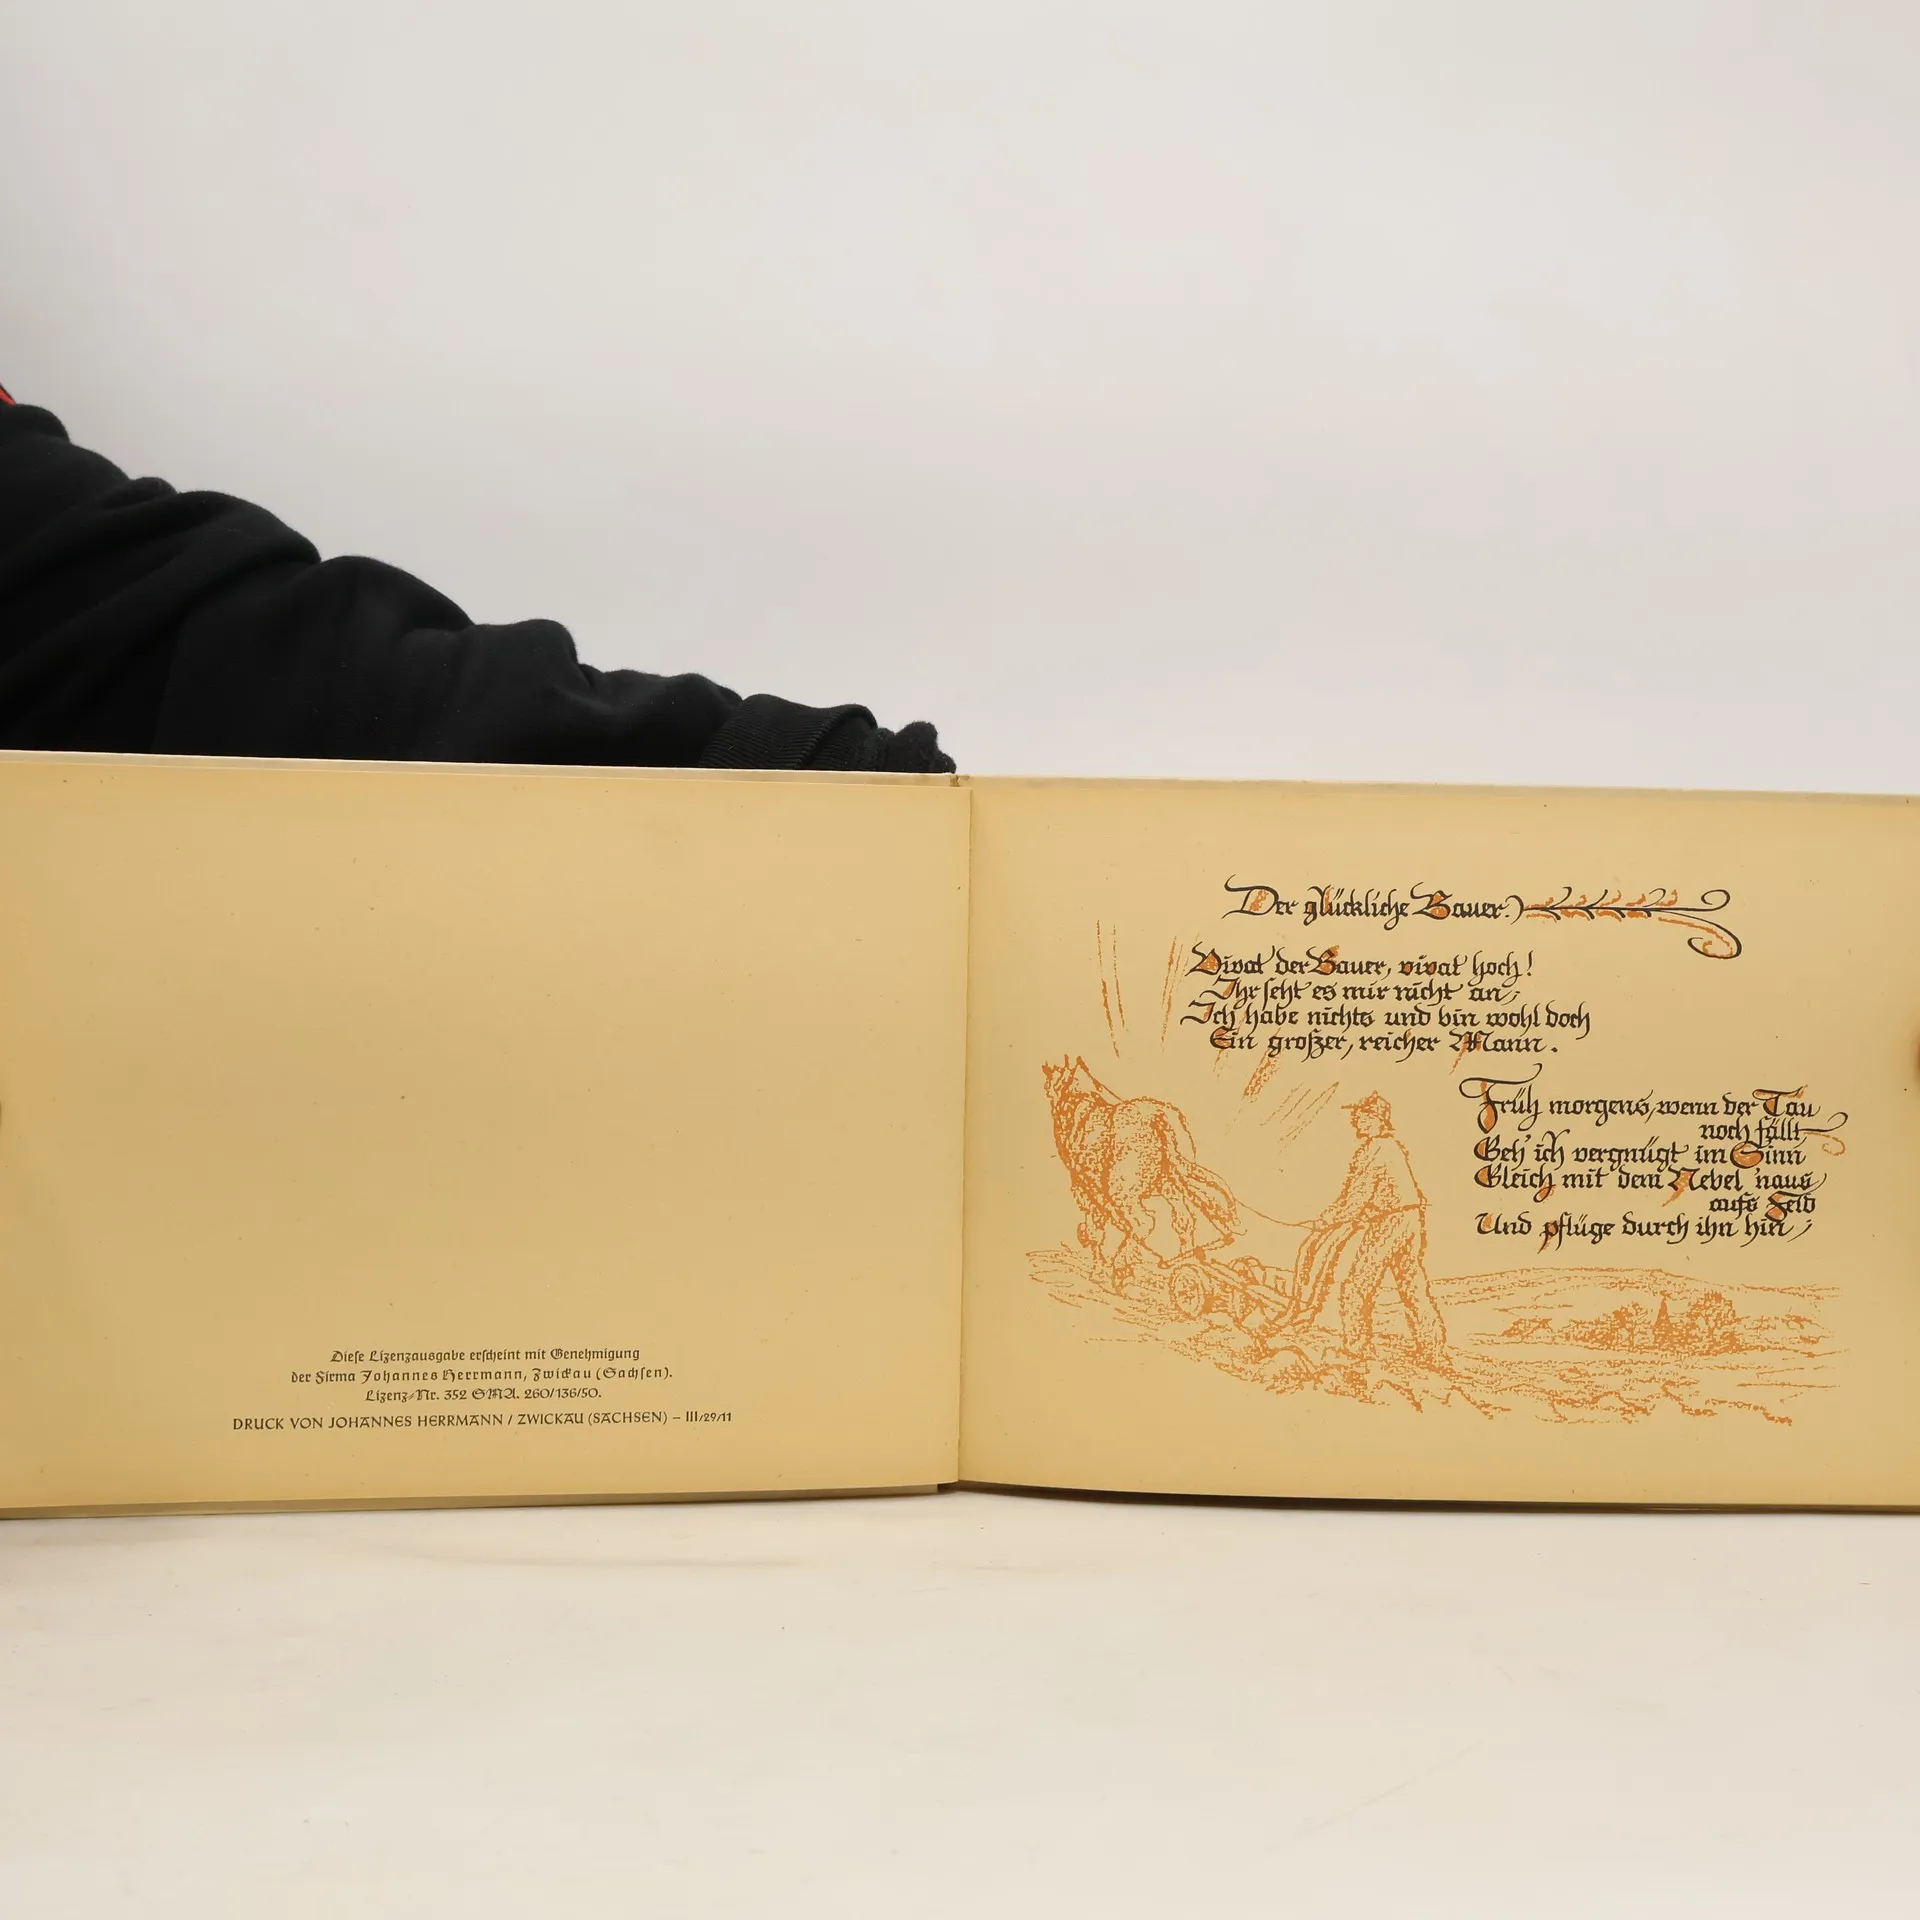 Diese Lizenzausgabe erscheint mit Genehmigung
der Firma Johannes Herrmann, Zwickau (Sachsen).
Lizenz-Nr. 352 SMA. 260/136/50.
DRUCK VON JOHANNES HERRMANN / ZWICKAU (SACHSEN) – III/29/11
Der glückliche Bauer.
Vivat der Bauer, vivat hoch!
Ihr seht es mir nicht an;
Ich habe nichts und bin wohl doch
Ein großer, reicher Mann.
Früh morgens, wenn der Tau
noch fällt,
Geh' ich vergnügt im Sinn
Gleich mit dem Nebel 'naus
aufs Feld
Und pflüge durch ihn hin;